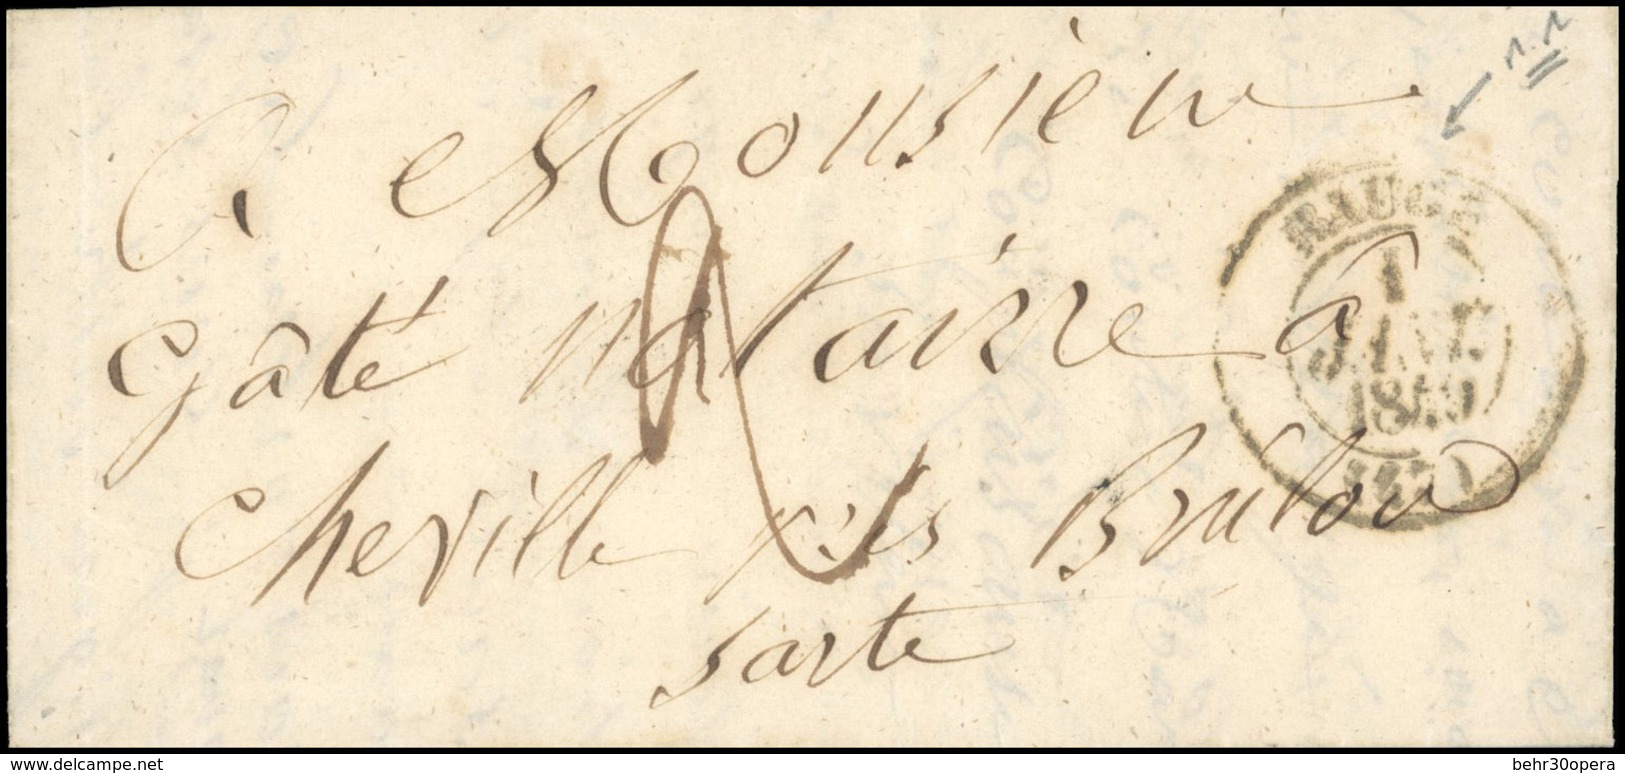 A Monsieur
Gâté notairre à
Cheville près Brulon
Sarte
BAUGÉ
1
JANV.
1849
delcampe.net
behr30opera